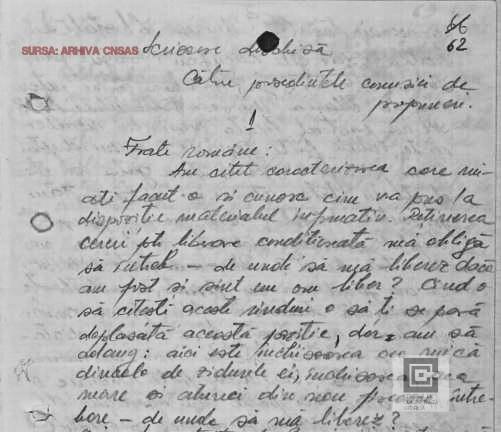 66
62
SURSA: ARHIVA CNSAS
Scrisoare deschisă
Către președintele comisiei de
propuneri.
1
Frate române:
Am citit caracterizarea care mi-
ați făcut-o și cunosc cine v-a pus la
dispoziție materialul informativ. Retragerea
cererii ptr liberare condiționată mă obligă
să întreb – de unde să mă liberez dacă
am fost și sînt un om liber? Cînd o
să citești aceste rînduri o să ți se pară
deplasată această poziție, dar am să
adaug: aici este închisoarea cea mică
dincolo de zidurile ei, închisoarea cea
mare și atunci din nou între-
bare – de unde să mă liberez?